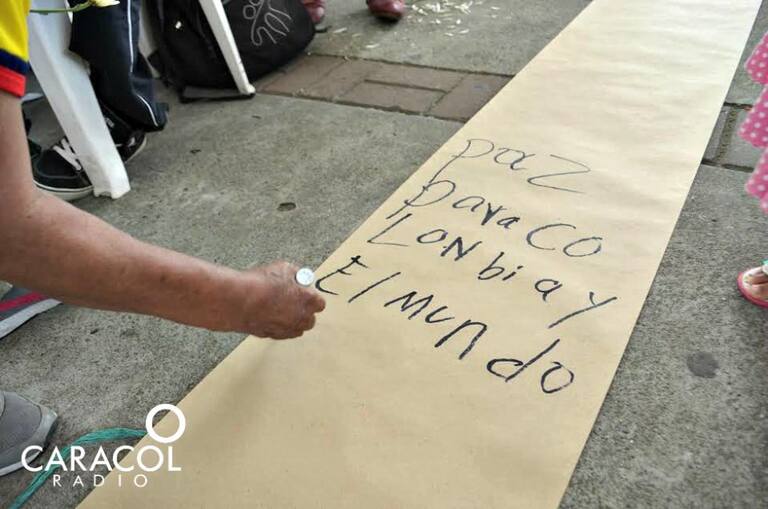 paz
paraco
Lonbia y
El mundo
CARACOL
RADIO